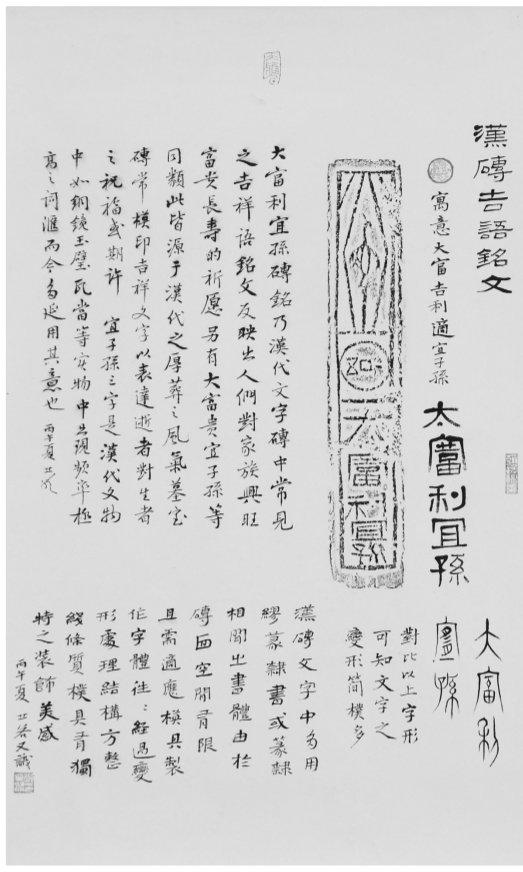 漢磚吉語銘文
寓意大富吉利適宜子孫
大富利宜孫
大富利宜孫
大富利宜孫磚銘乃漢代文字磚中常見
之吉祥語銘文反映出人們對家族興旺
富貴長壽的祈愿另有大富貴宜子孫等
同類此皆源于漢代之厚葬之風氣墓室
磚常模印吉祥文字以表達逝者對生者
之祝福或期許 宜子孫三字是漢代文物
中如銅鏡玉璧瓦當等實物中出現頻率極
高之詞滙而今多延用其意也 丙午夏
大富利
宜孫
對比以上字形
可知文字之
變形簡樸多
漢磚文字中多用
繆篆隸書或篆隸
相間之書體由於
磚面空間有限
且需適應模具製
作字體往往經過變
形處理結構方整
綫條質樸具有獨
特之裝飾美感
丙午夏 又識